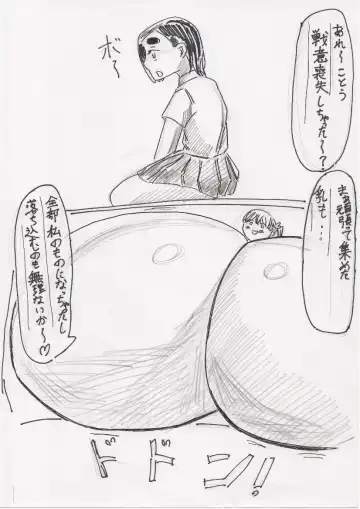 あれ〜ことう
戦意喪失しちゃった〜?
ボ〜
まあ頑張って集めた
乳も・・・
全部私のものになっちゃったし
落ち込むのも無理ないか〜♡
ドドン!